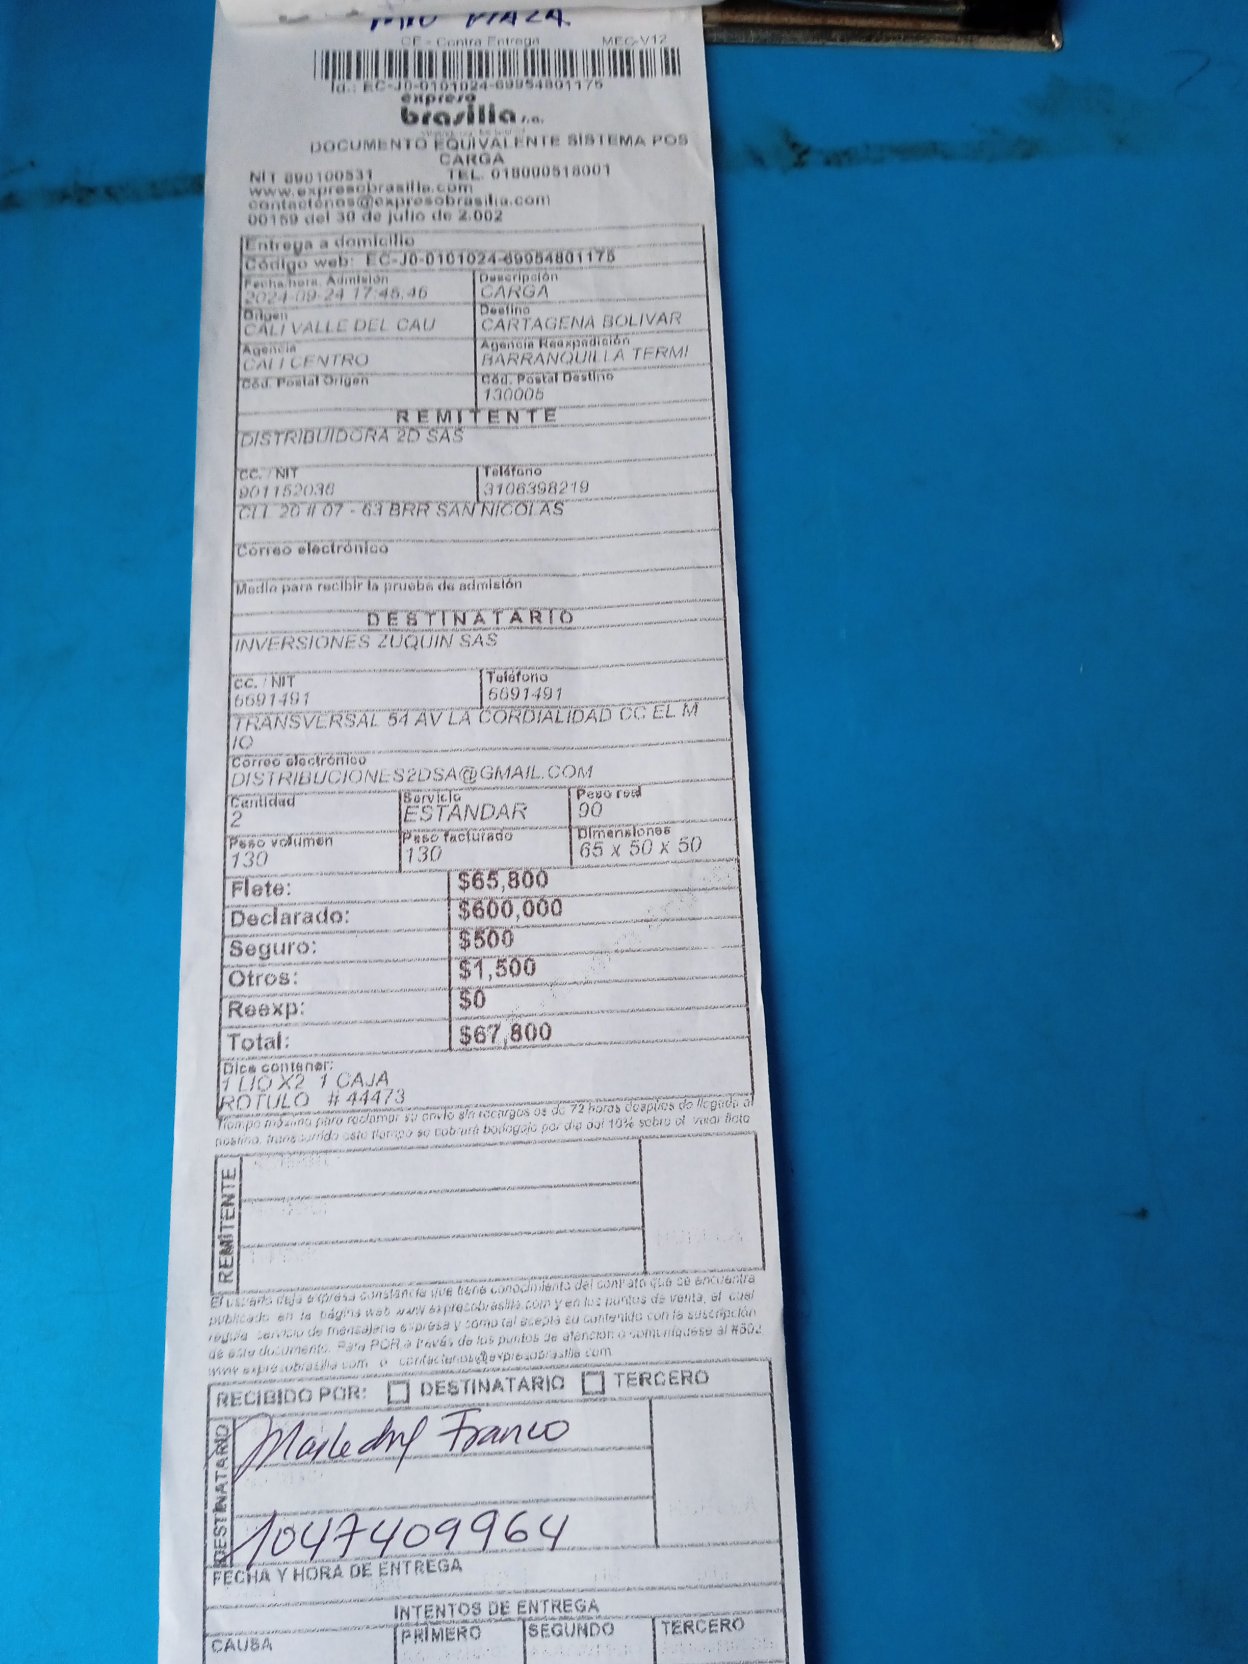 MIO PLAZA
CE - Contra Entrega MEC-V12
Id.: EC-J0-0101024-69954801175
expreso
brasilia s.a.
DOCUMENTO EQUIVALENTE SISTEMA POS
CARGA
NIT 890100531 TEL. 018000518001
www.expresobrasilia.com
contactenos@expresobrasilia.com
00159 del 30 de julio de 2.002
Entrega a domicilio
Código web: EC-J0-0101024-69954801175
Fecha.hora. Admisión Descripción
2024-09-24 17:45:46 CARGA
Origen Destino
CALI VALLE DEL CAU CARTAGENA BOLIVAR
Agencia Agencia Reexpedición
CALI CENTRO BARRANQUILLA TERMI
Cód. Postal Origen Cód. Postal Destino
130005
REMITENTE
DISTRIBUIDORA 2D SAS
CC. / NIT Teléfono
901152036 3106398219
CLL 20 # 07 - 63 BRR SAN NICOLAS
Correo electrónico
Medio para recibir la prueba de admisión
DESTINATARIO
INVERSIONES ZUQUIN SAS
CC. / NIT Teléfono
6691491 6691491
TRANSVERSAL 54 AV LA CORDIALIDAD CC EL M
IO
Correo electrónico
DISTRIBUCIONES2DSA@GMAIL.COM
Cantidad Servicio Peso real
2 ESTANDAR 90
Peso volumen Peso facturado Dimensiones
130 130 65 x 50 x 50
Flete: $65,800
Declarado: $600,000
Seguro: $500
Otros: $1,500
Reexp: $0
Total: $67,800
Dice contener:
1 LIO X2 1 CAJA
ROTULO # 44473
Tiempo máximo para reclamar su envío sin recargos es de 72 horas después de llegada al
destino, transcurrido este tiempo se cobrará bodegaje por día del 10% sobre el valor flete
REMITENTE
El usuario deja expresa constancia que tiene conocimiento del contrato que se encuentra
publicado en la página web www.expresobrasilia.com y en los puntos de venta, el cual
regula servicio de mensajería expresa y como tal acepta su contenido con la suscripción
de este documento. Para PQR a través de los puntos de atención o comuníquese al #502
www.expresobrasilia.com o contactenos@expresobrasilia.com
RECIBIDO POR: DESTINATARIO TERCERO
DESTINATARIO
Franco
1047409964
FECHA Y HORA DE ENTREGA
INTENTOS DE ENTREGA
CAUSA PRIMERO SEGUNDO TERCERO